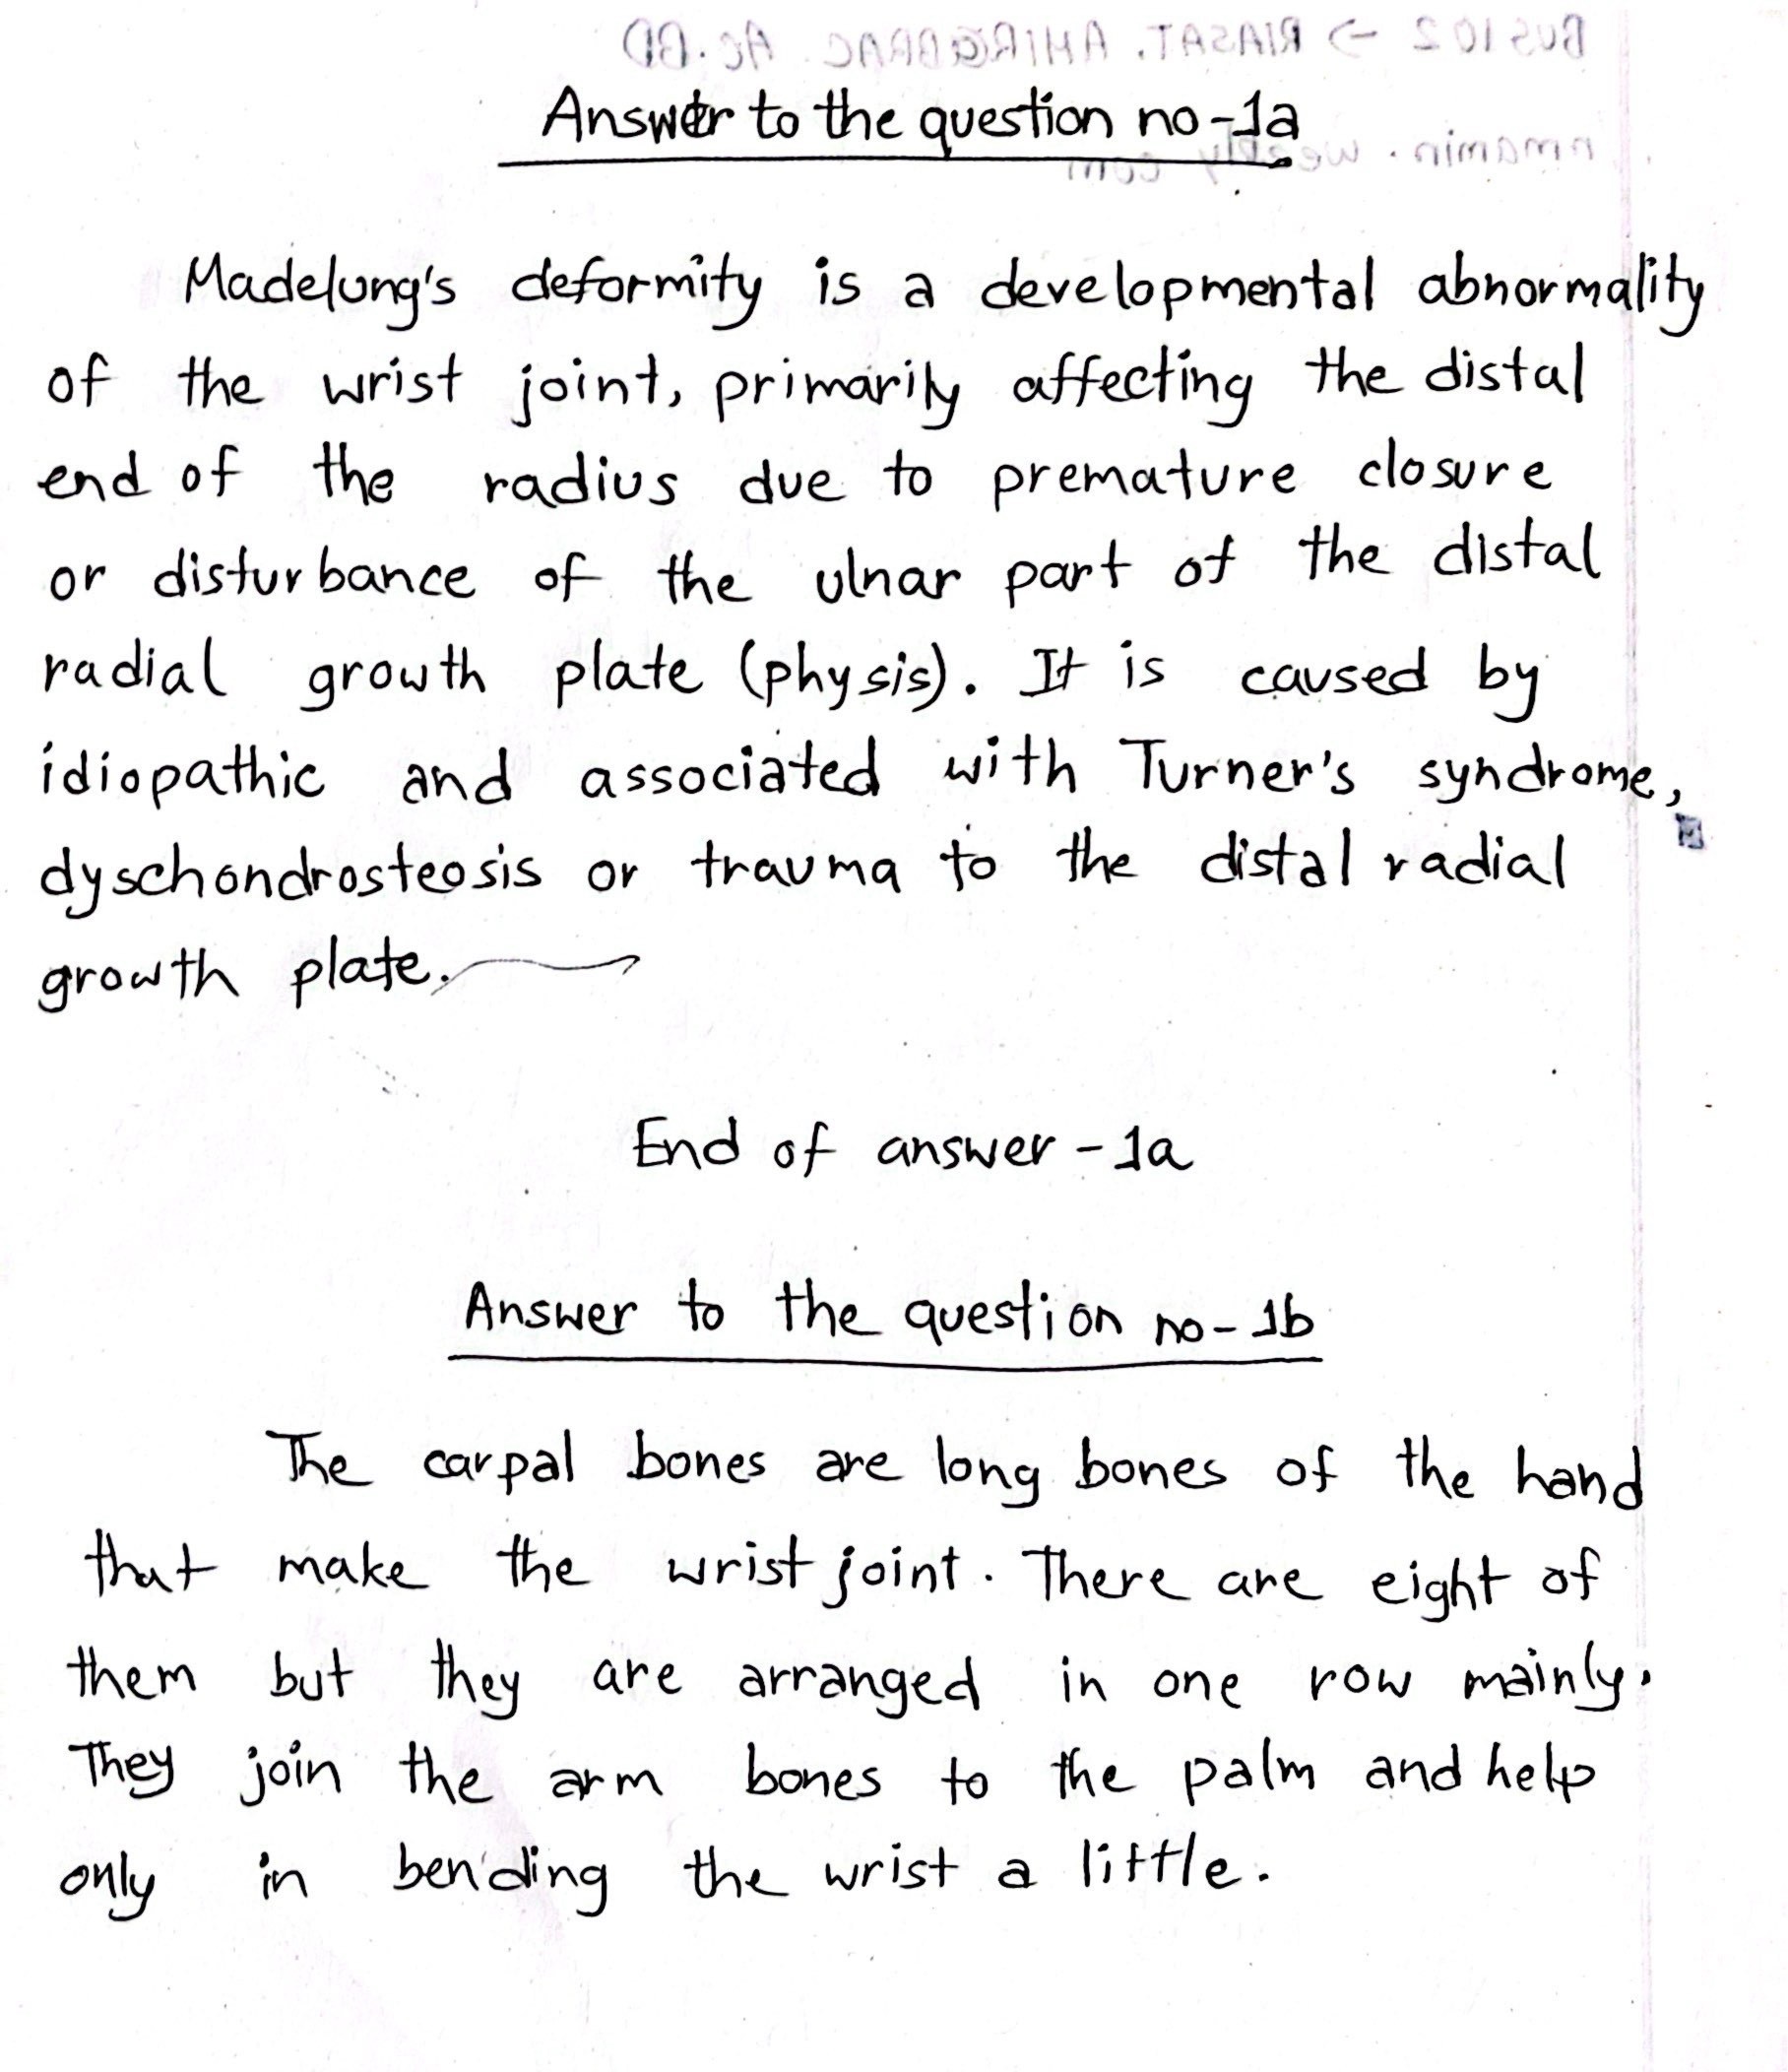 BUS102 → RIASAT. AHIR@BRAC. AC.BD
Answer to the question no-1a
nmamin. weebly com
Madelung's deformity is a developmental abnormality
of the wrist joint, primarily affecting the distal
end of the radius due to premature closure
or disturbance of the ulnar part of the distal
radial growth plate (physis). It is caused by
idiopathic and associated with Turner's syndrome,
dyschondrosteosis or trauma to the distal radial
growth plate.
End of answer - 1a
Answer to the question no- 1b
The carpal bones are long bones of the hand
that make the wrist joint. There are eight of
them but they are arranged in one row mainly.
They join the arm bones to the palm and help
only in bending the wrist a little.